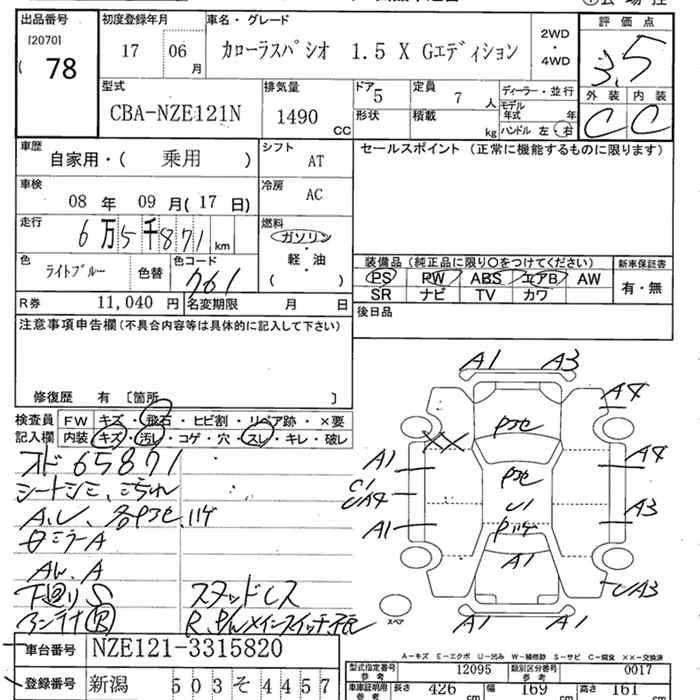 出品番号 初度登録年月 車名・グレード 評価点
[2070] 78 17 06月 カローラスパシオ 1.5 X Gエディション 2WD・4WD 3.5
外装 内装
C C
型式 排気量 ドア 定員 ディーラー・並行
CBA-NZE121N 1490 CC 5 7人 モデル年式 年
形状 積載 kg ハンドル 左・右
車歴 自家用・( 乗用 ) シフト AT セールスポイント (正常に機能するものに限ります)
車検 08年 09月(17日) 冷房 AC
走行 6万5千871 km 燃料 ガソリン・軽・油 ( )
色 ライトブルー 色替 色コード 761
装備品 (純正品に限り○をつけてください) 新車保証書
PS PW ABS エアB AW 有・無
SR ナビ TV カワ
R券 11,040円 名変期限 月 日 後日品
注意事項申告欄 (不具合内容等は具体的に記入して下さい)
修復歴 有 [箇所 ]
検査員 FW キズ・飛石・ヒビ割・リペア跡・×要
記入欄 内装 キズ・汚レ・コゲ・穴・スレ・キレ・破レ
オド 65871
A.U、
ミラーA
AW.A
下廻りS スタッドレス
アンテナ R
A1 A3
A4
XX
A1
U1
UA4
A1
A3
U1
A1
UA3
A1 A1
スペア
A-キズ E-エクボ U-凹み W-補修跡 S-サビ C-腐食 XX-交換済
車台番号 NZE121-3315820
登録番号 新潟 503 そ 4457
型式指定番号 参考 12095 類別区分番号 参考 0017
車庫証明用 参考 長さ 426 cm 幅 169 cm 高さ 161 cm